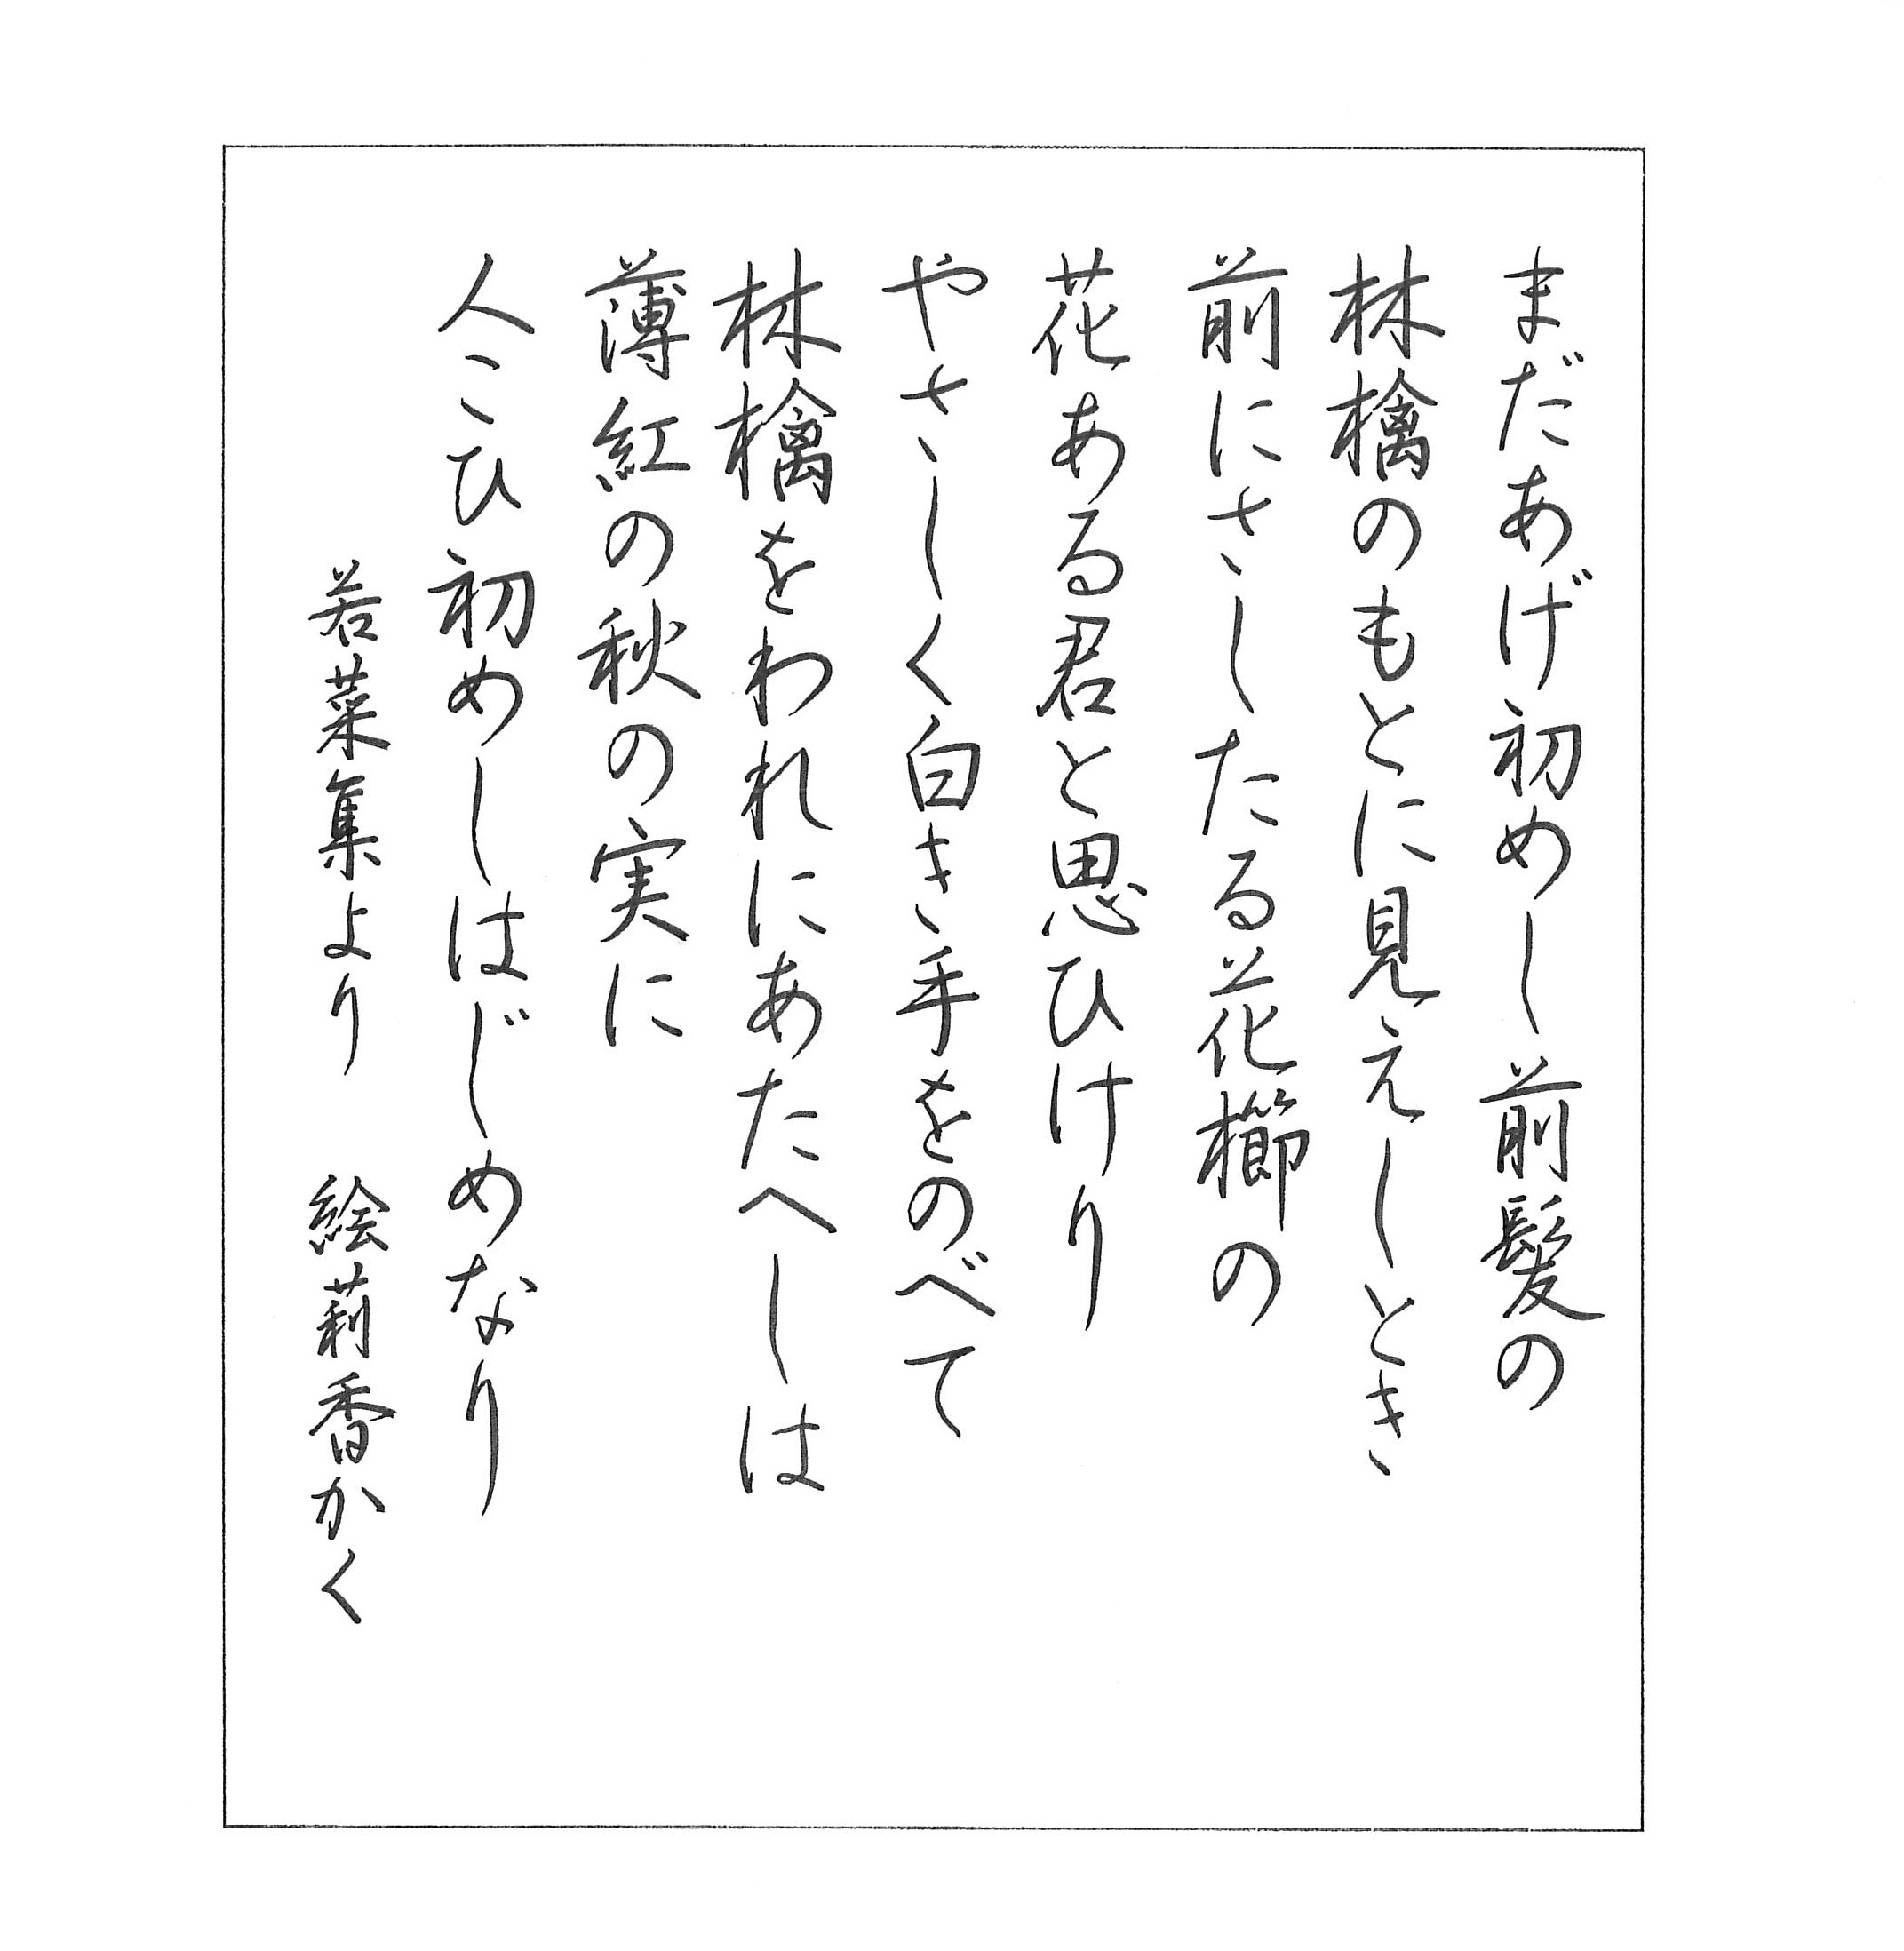 まだあげ初めし前髪の
林檎のもとに見えしとき
前にさしたる花櫛の
花ある君と思ひけり
やさしく白き手をのべて
林檎をわれにあたへしは
薄紅の秋の実に
人こひ初めしはじめなり
若菜集より 絵莉香かく